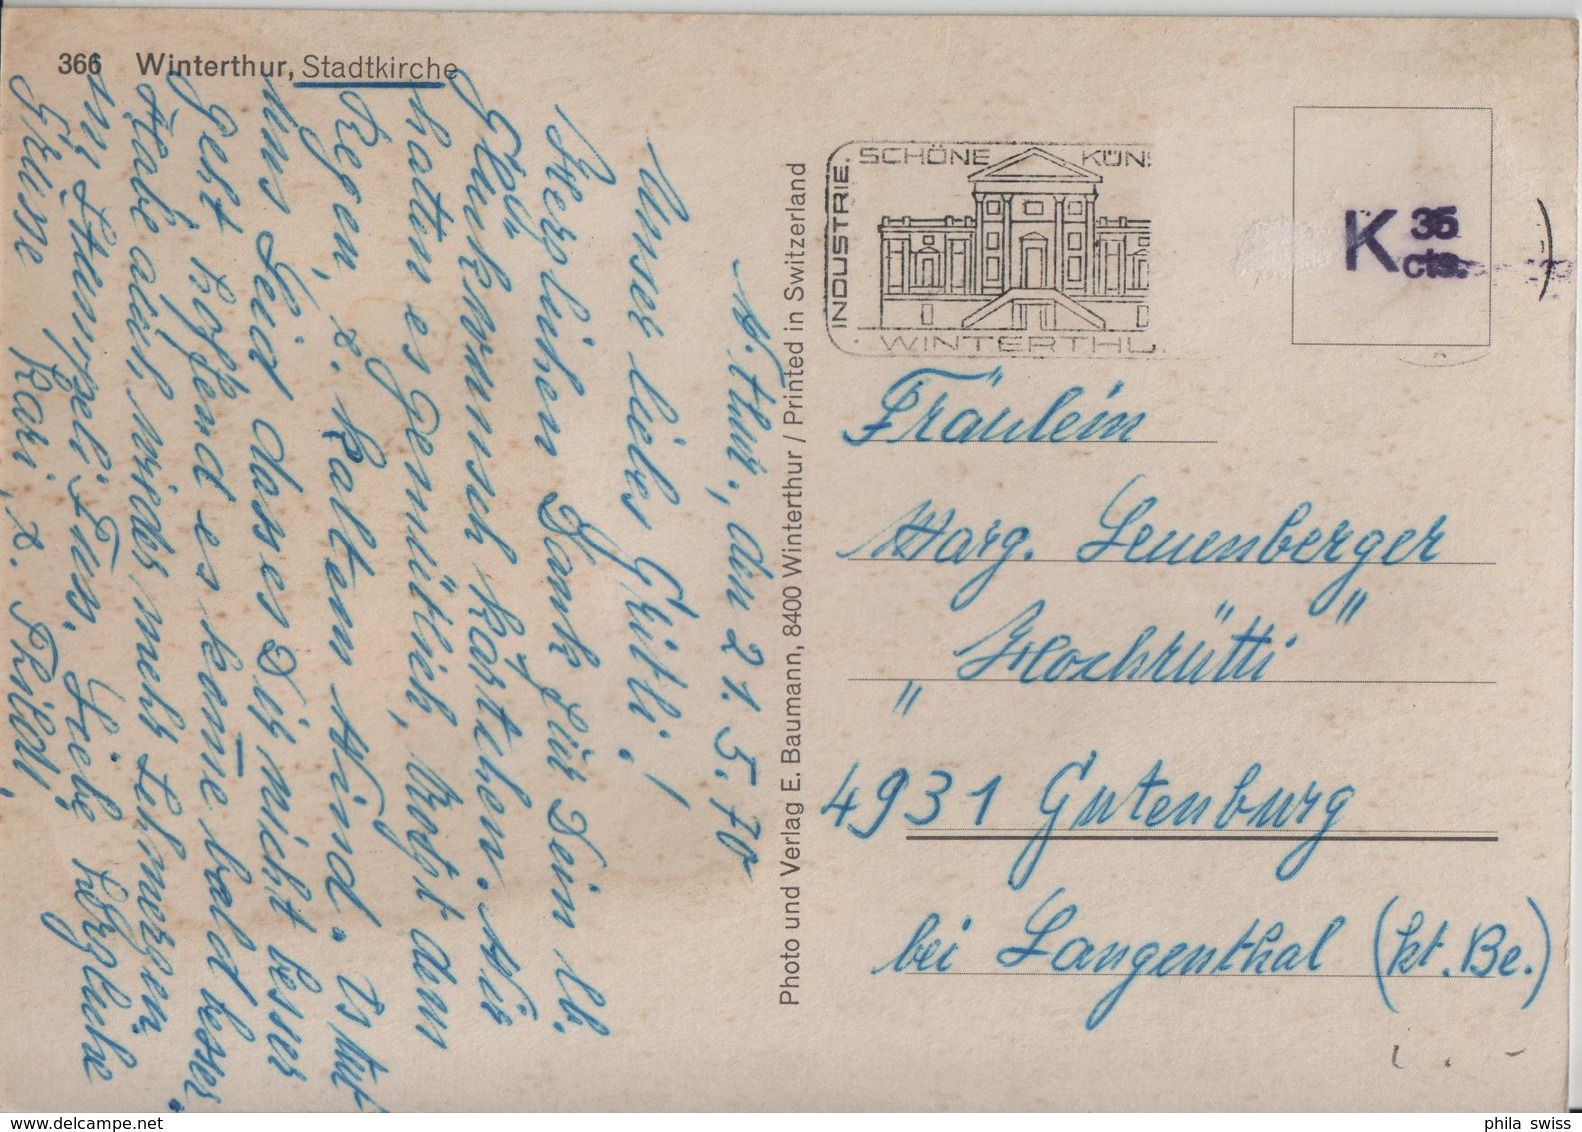 366 Winterthur, Stadtkirche
W.thur, den 21.5.70
Unser liebes Gritli!
Herzlichen Dank für Dein lb.
Glückwunsch kärtchen. Wir
hatten es gemütlich, trotz dem
Regen, & kaltem Wind. Es tut
uns Leid dass es Dir nicht besser
geht hoffend es kome bald besser.
Habe auch wieder mehr Schmerzen
im Stumpeli Fuss. Liebe herzliche
Grüsse Kari, & Thildi
Photo und Verlag E. Baumann, 8400 Winterthur / Printed in Switzerland
INDUSTRIE. SCHÖNE KÜN
WINTERTHU
K 35 cts.
Fräulein
Marg. Leuenberger
"Hochrütti"
4931 Gutenburg
bei Langenthal (kt. Be.)
phila swiss